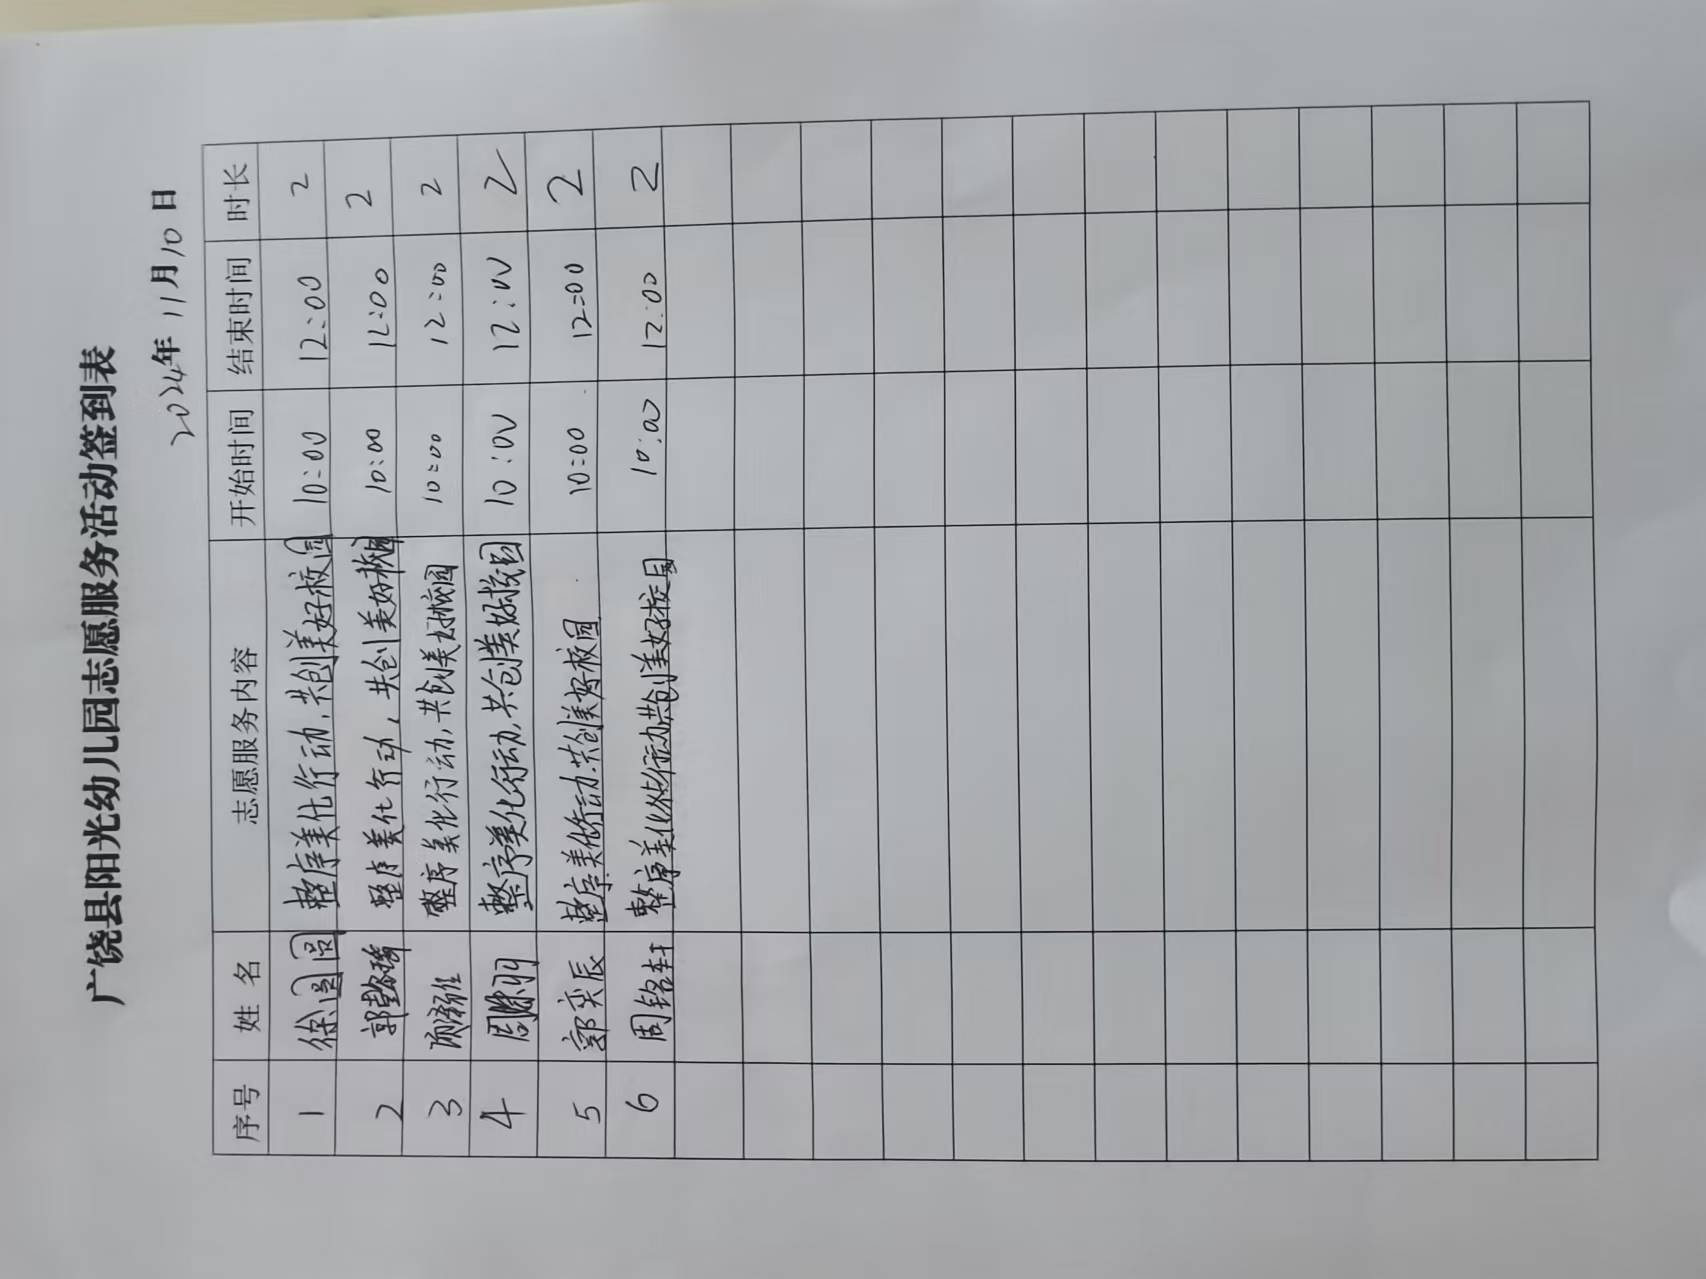 广饶县阳光幼儿园志愿服务活动签到表
2024年11月10日
序号 姓名 志愿服务内容 开始时间 结束时间 时长
1 徐圆圆 整序美化行动,共创美好校园 10:00 12:00 2
2 郭 整序美化行动,共创美好校园 10:00 12:00 2
3 整序美化行动,共创美好校园 10:00 12:00 2
4 周 羽 整序美化行动,共创美好校园 10:00 12:00 2
5 郭奕辰 整序美化行动.共创美好校园 10:00 12:00 2
6 周铭轩 整序美化行动共创美好校园 10:00 12:00 2